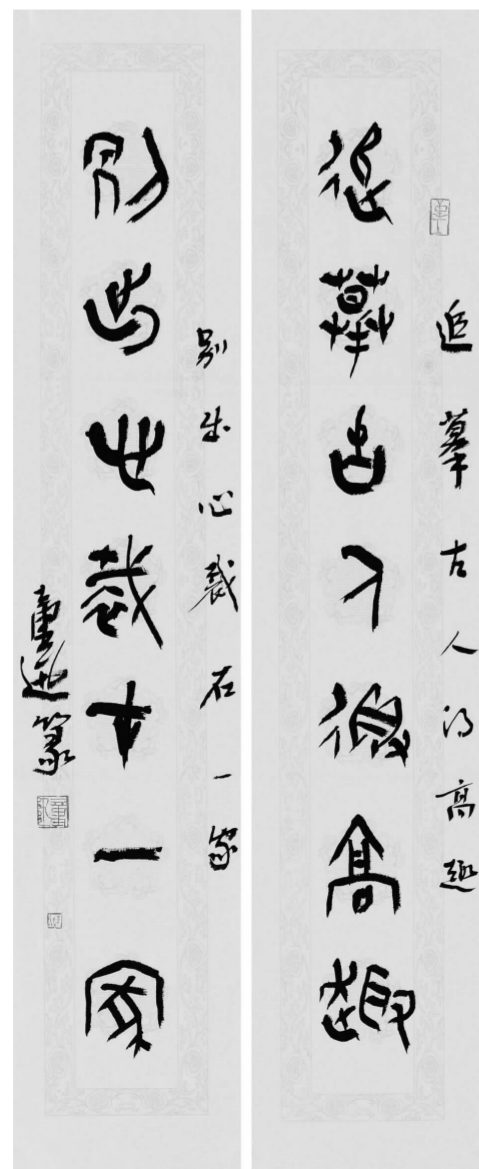 追摹古人得高趣
追摹古人得高趣
别出心裁在一家
别出心裁在一家
童篆